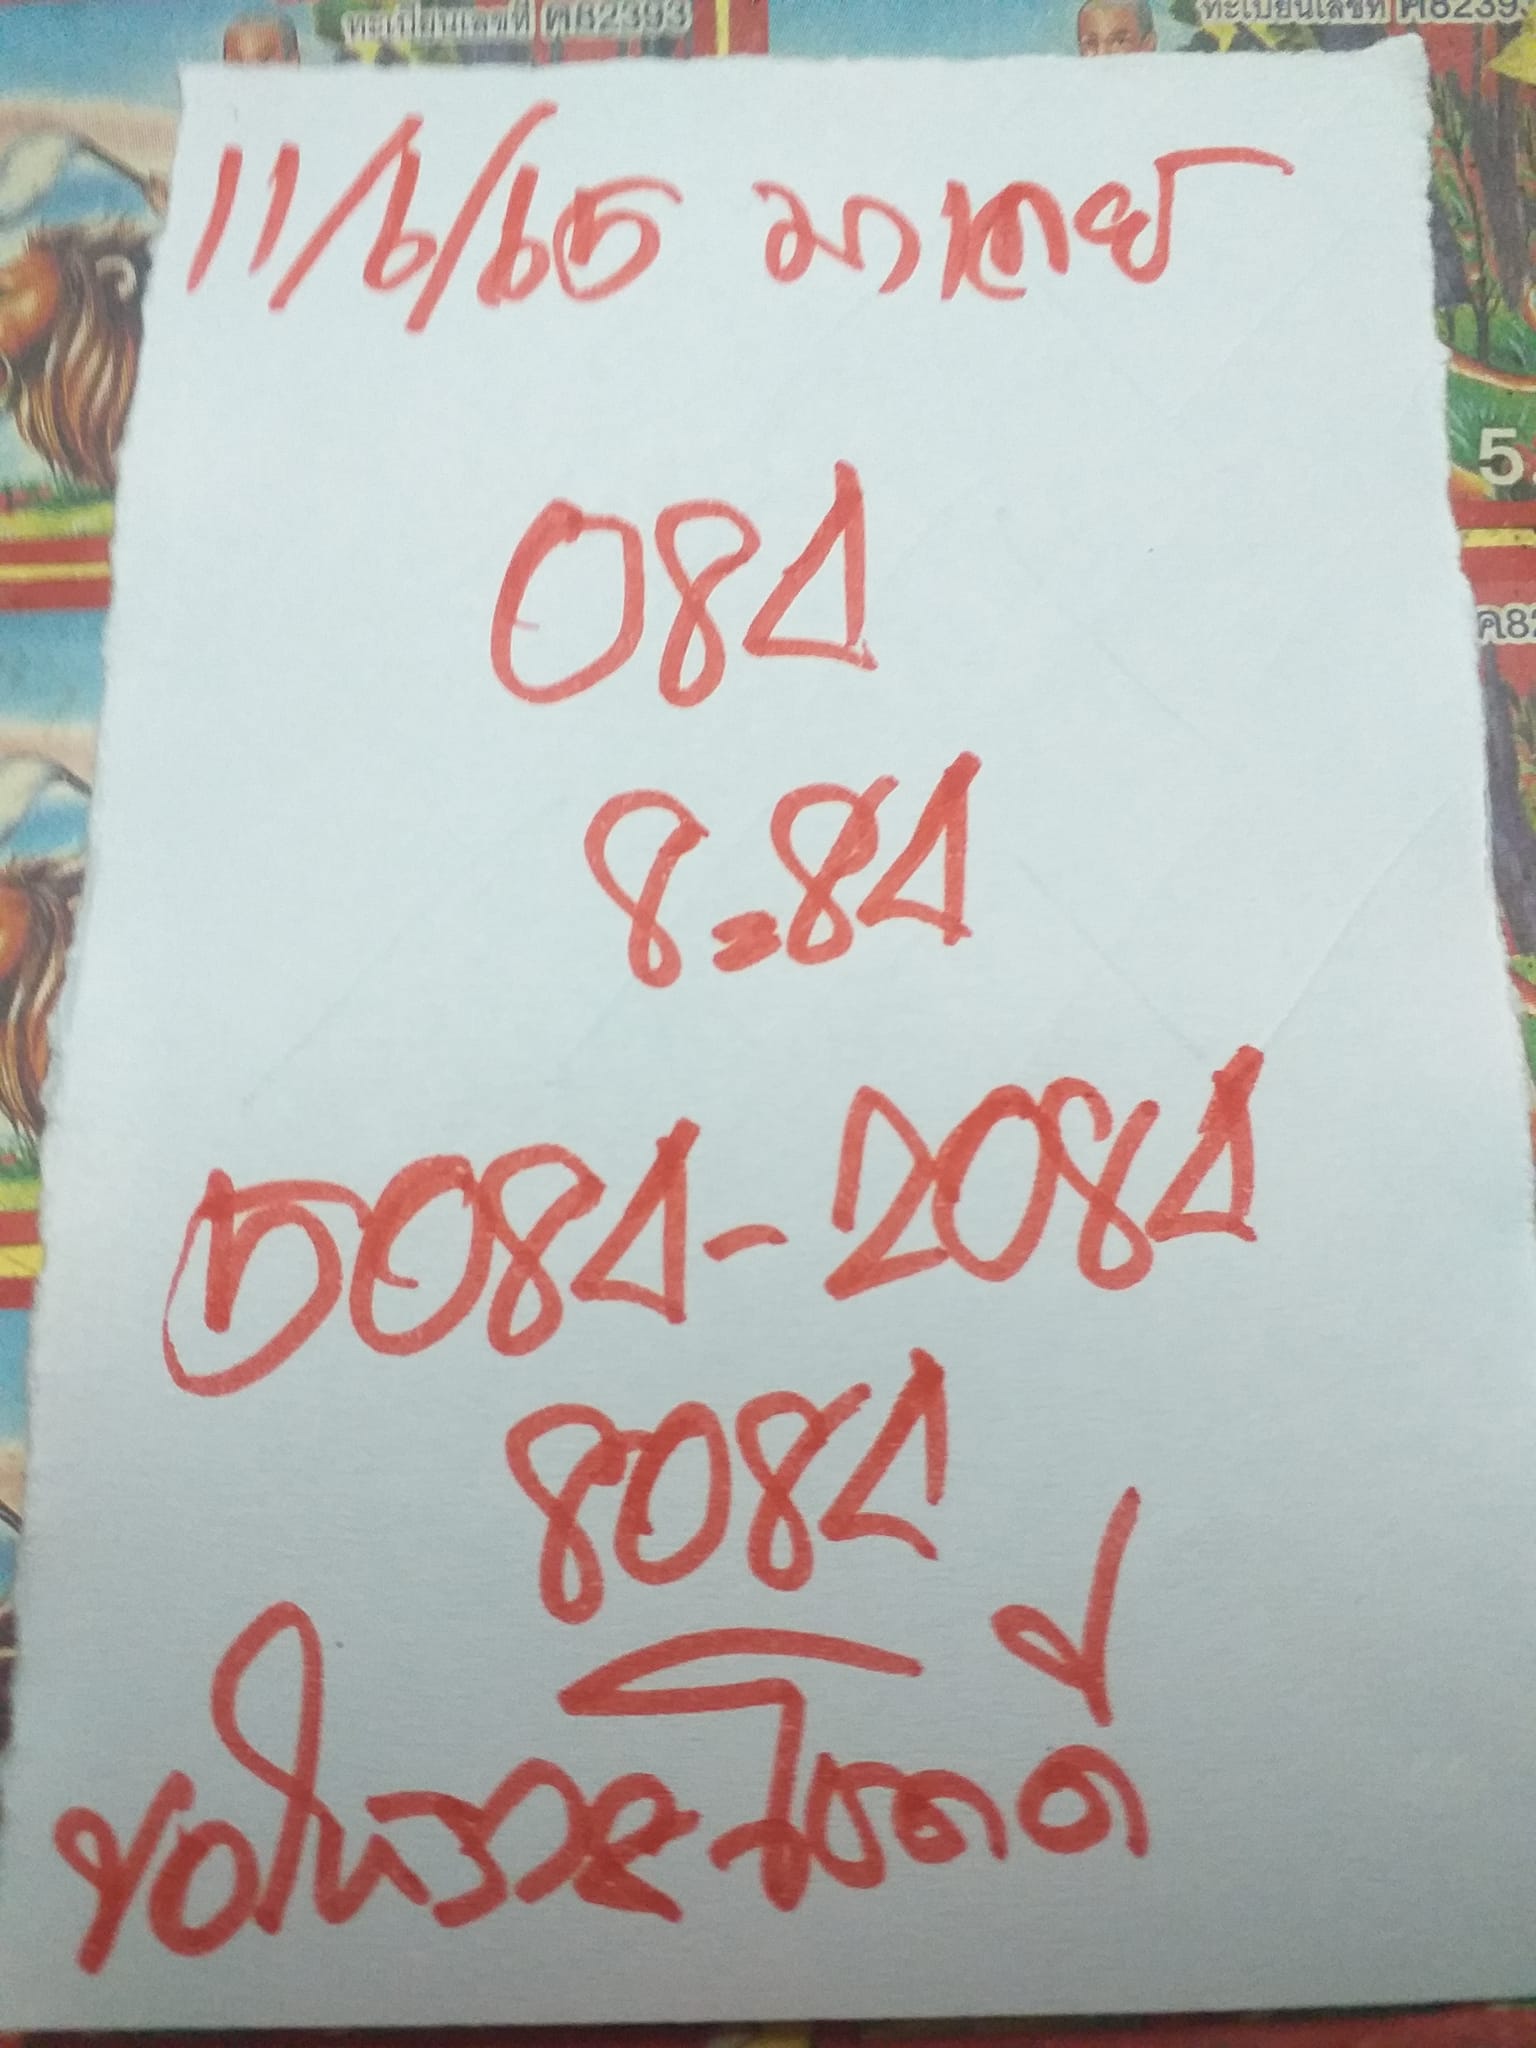 ทะเบียนเลขที่ ค82393
ทะเบียนเลขที่ ค8239
11/6/65 มาเลย์
084
8=84
5.
ค82
5084-2084
8084
ขอให้รวยโชคดี